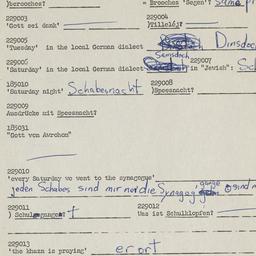 )berooches? = Brooches 'Segen'? same
229003 229004
'Gott sei dank' )Tille16?
229005
'Tuesday' in the local German dialect Dinsdach
229006 Samsdach 229007
'Saturday' in the local German dialect in "Jewish":
185010 229008
'Saturday night' Schabesnacht )Spessnacht?
229009
Ausdrücke mit Spessnacht?
185031
"Gott von Avrohom"
229010
'every Saturday we went to the synagogue'
jeden Schabes sind mir nor die Synagog gange
229011 229012
) Schulgangen? Was ist Schulklopfen?
229013
'the khazn is praying' er ort